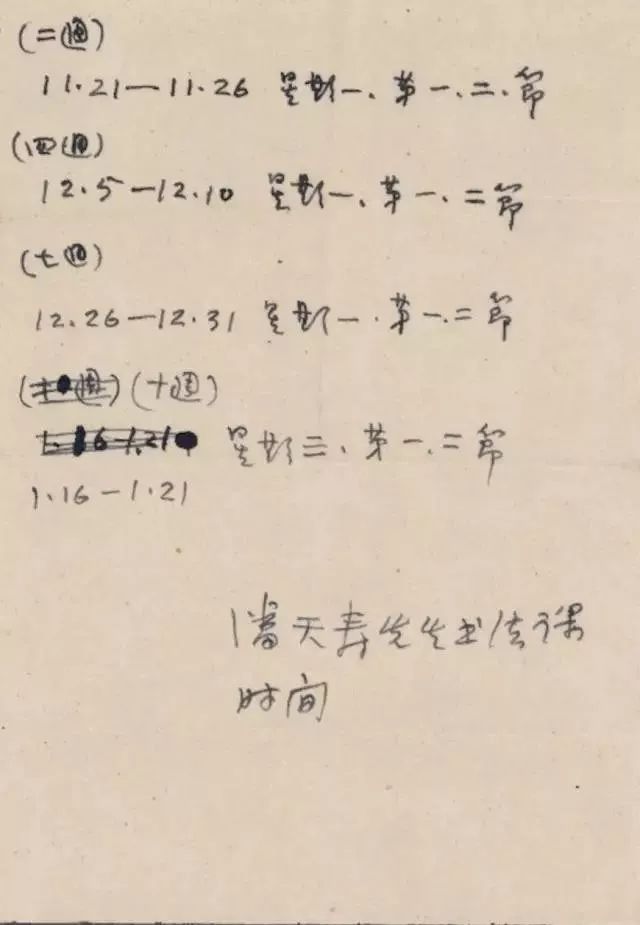 (二週)
11.21—11.26 星期一、第一、二、節
(四週)
12.5—12.10 星期一、第一、二節
(七週)
12.26—12.31 星期一、第一、二節
(十週)
1.16-1.21 星期三、第一、二節
1.16-1.21
潘天寿先生书法课
时间